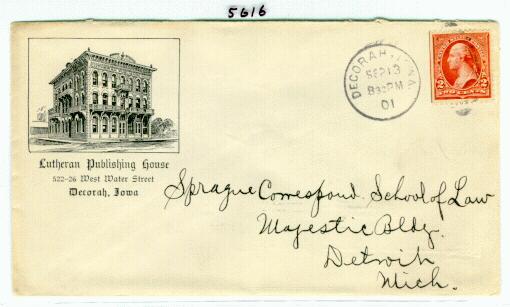 5616
DECORAH, IOWA.
SEP 13
8 30 PM
01
2 2
TWO CENTS
Lutheran Publishing House
522-26 West Water Street
Decorah, Iowa
Sprague Correspond. School of Law
Majestic Bldg.
Detroit
Mich.